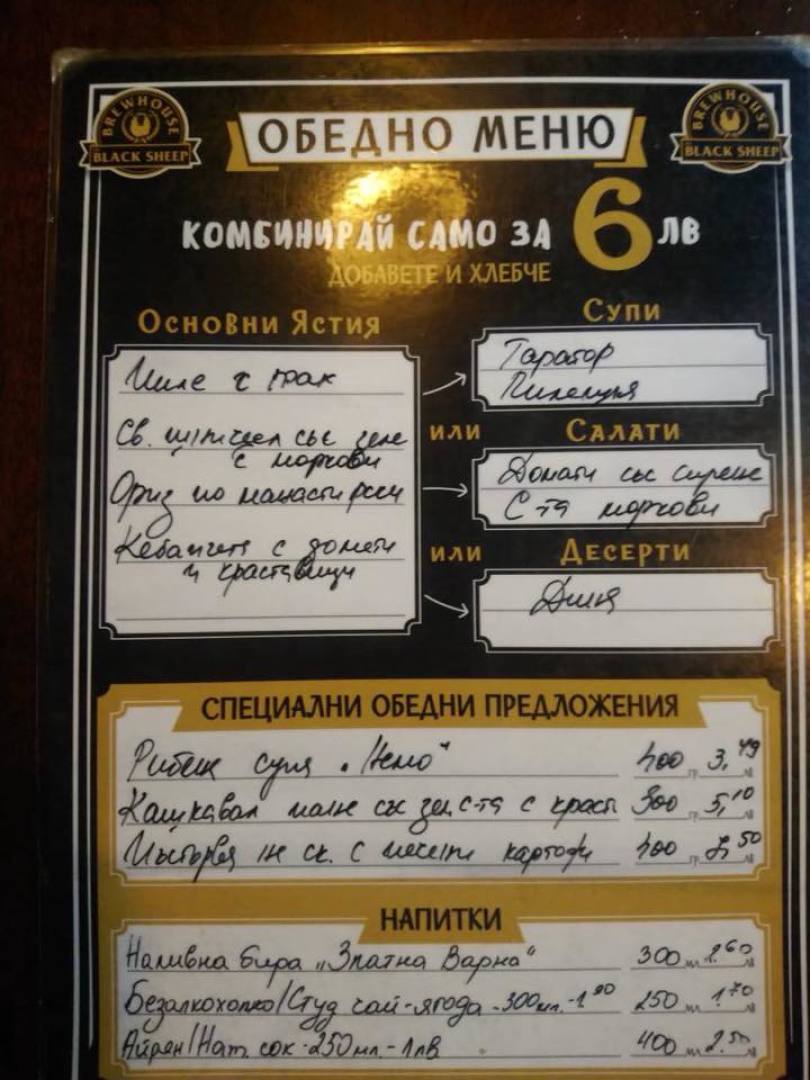 BREWHOUSE
BLACK SHEEP
ОБЕДНО МЕНЮ
BREWHOUSE
BLACK SHEEP
КОМБИНИРАЙ САМО ЗА 6 ЛВ
ДОБАВЕТЕ И ХЛЕБЧЕ
ОСНОВНИ ЯСТИЯ
Пиле с грах
Св. шницел със зеле
с моркови
Ориз по манастирски
Кебапчета с домати
и краставици
СУПИ
Таратор
Пилешка
или
САЛАТИ
Домати със сирене
С-та моркови
или
ДЕСЕРТИ
Диня
СПЕЦИАЛНИ ОБЕДНИ ПРЕДЛОЖЕНИЯ
супа "Немо" 400 гр. 3,49 лв
Кашкавал пане със зел. с-та с краст 300 гр. 5,10 лв
с картофи 400 гр. 50 лв
НАПИТКИ
Наливна бира „Златна Варна" 300 мл 2.60 лв
Безалкохолно/Студ чай-ягода-300мл.-1.90 250 мл 1.70 лв
Айрян/Нат. сок-250мл-1лв 400 мл 2.50 лв